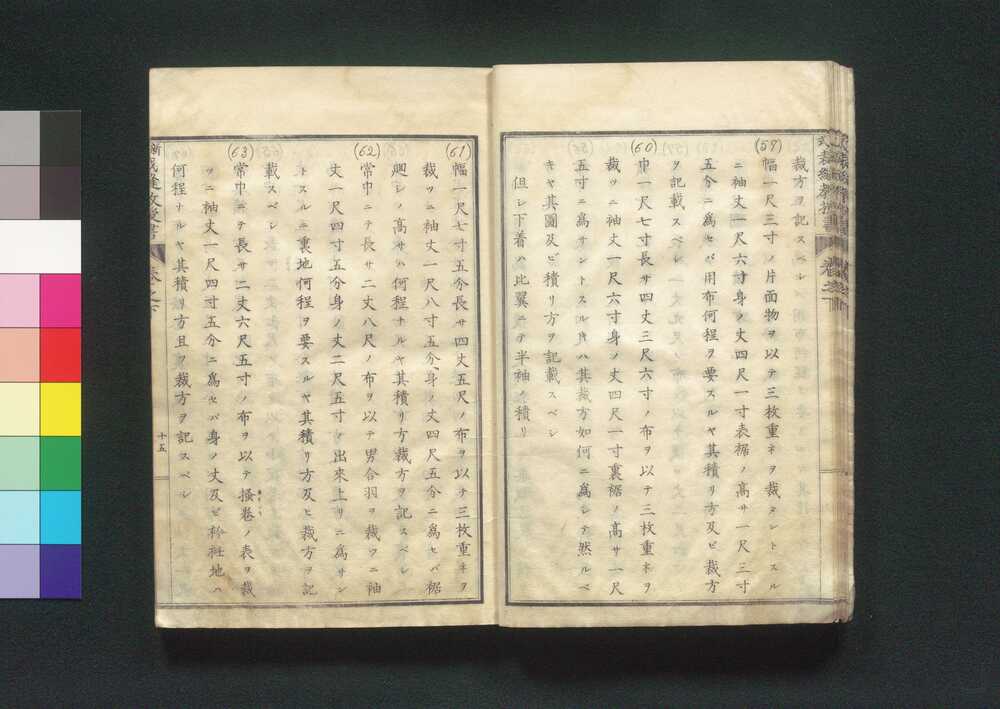 裁方ヲ記スベシ
(59)
幅一尺三寸ノ片面物ヲ以テ三枚重ネヲ裁タントスル
ニ袖丈一尺六寸身ノ丈四尺一寸表裾ノ高サ一尺三寸
五分ニ爲セバ用布何程ヲ要スルヤ其積リ方及ビ裁方
ヲ記載スベシ
(60)
巾一尺七寸長サ四丈三尺六寸ノ布ヲ以テ三枚重ネヲ
裁ツニ袖丈一尺六寸身ノ丈四尺一寸裏裾ノ高サ一尺
五寸ニ爲サントスル片ハ其裁方如何ニ爲シテ然ルベ
キヤ其圖及ビ積リ方ヲ記載スベシ
但シ下着ハ比翼ニテ半袖ノ積リ
(61)
幅一尺七寸五分長サ四丈五尺ノ布ヲ以テ三枚重ネヲ
裁ツニ袖丈一尺八寸五分身ノ丈四尺五分ニ爲セバ裾
廻シノ高サハ何程ナルヤ其積リ方裁方ヲ記スベシ
(62)
常巾ニテ長サ二丈八尺ノ布ヲ以テ男合羽ヲ裁ツニ袖
丈一尺四寸五分身ノ丈二尺五寸ケ出來上リニ爲サン
トスルニ裏地何程ヲ要スルヤ其積リ方及ヒ裁方ヲ記
載スベシ
(63)
常巾ニテ長サ二丈六尺五寸ノ布ヲ以テ搔卷ノ表ヲ裁
ツニ袖丈一尺四寸五分ニ爲セバ身ノ丈及ビ衽地ハ
何程ナルヤ其積リ方且ヲ裁方ヲ記スベシ
裁縫教授書 卷之下
十五